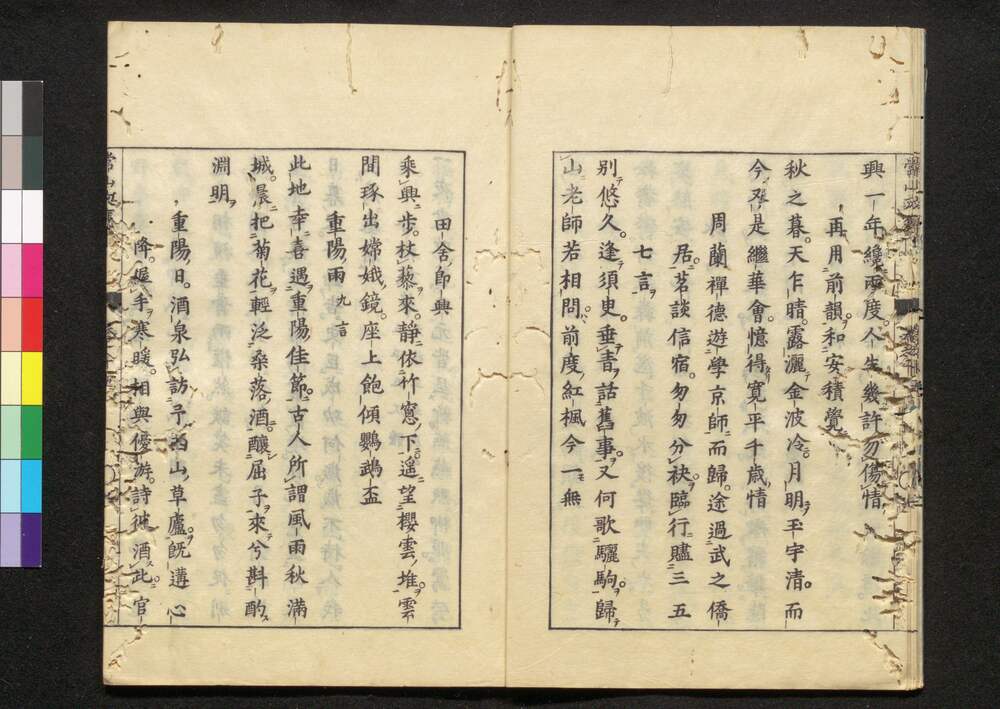 興一年纔兩度今生幾許勿傷情
再用前韻和安積覺
秋之暮天乍晴露灑金波冷月明玉宇清而
今又是繼華會憶得寛平千歳情
周蘭禪德遊學京師而歸途過武之僑
居茗談信宿勿勿分袂臨行贐三五
七言
別悠久逢須臾垂青話舊事又何歌驪駒歸
山老師若相問前度紅楓今一無
田舍即興
乘興步杖藜來靜依竹窓下遥望櫻雲堆雲
間琢出嫦娥鏡座上飽傾鸚鵡盃
重陽雨九言
此地幸喜遇重陽佳節古人所謂風雨秋滿
城晨把菊花輕泛桑落酒釀屈子來兮斟酌
淵明
重陽日酒泉弘訪予於西山草廬既遘心
降握手寒暖相與優游詩彼酒此官